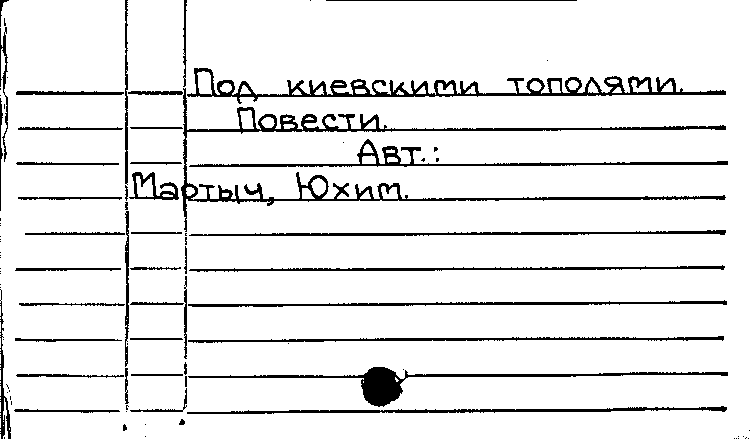 Под киевскими тополями.
Повести.
Авт.:
Мартыч, Юхим.